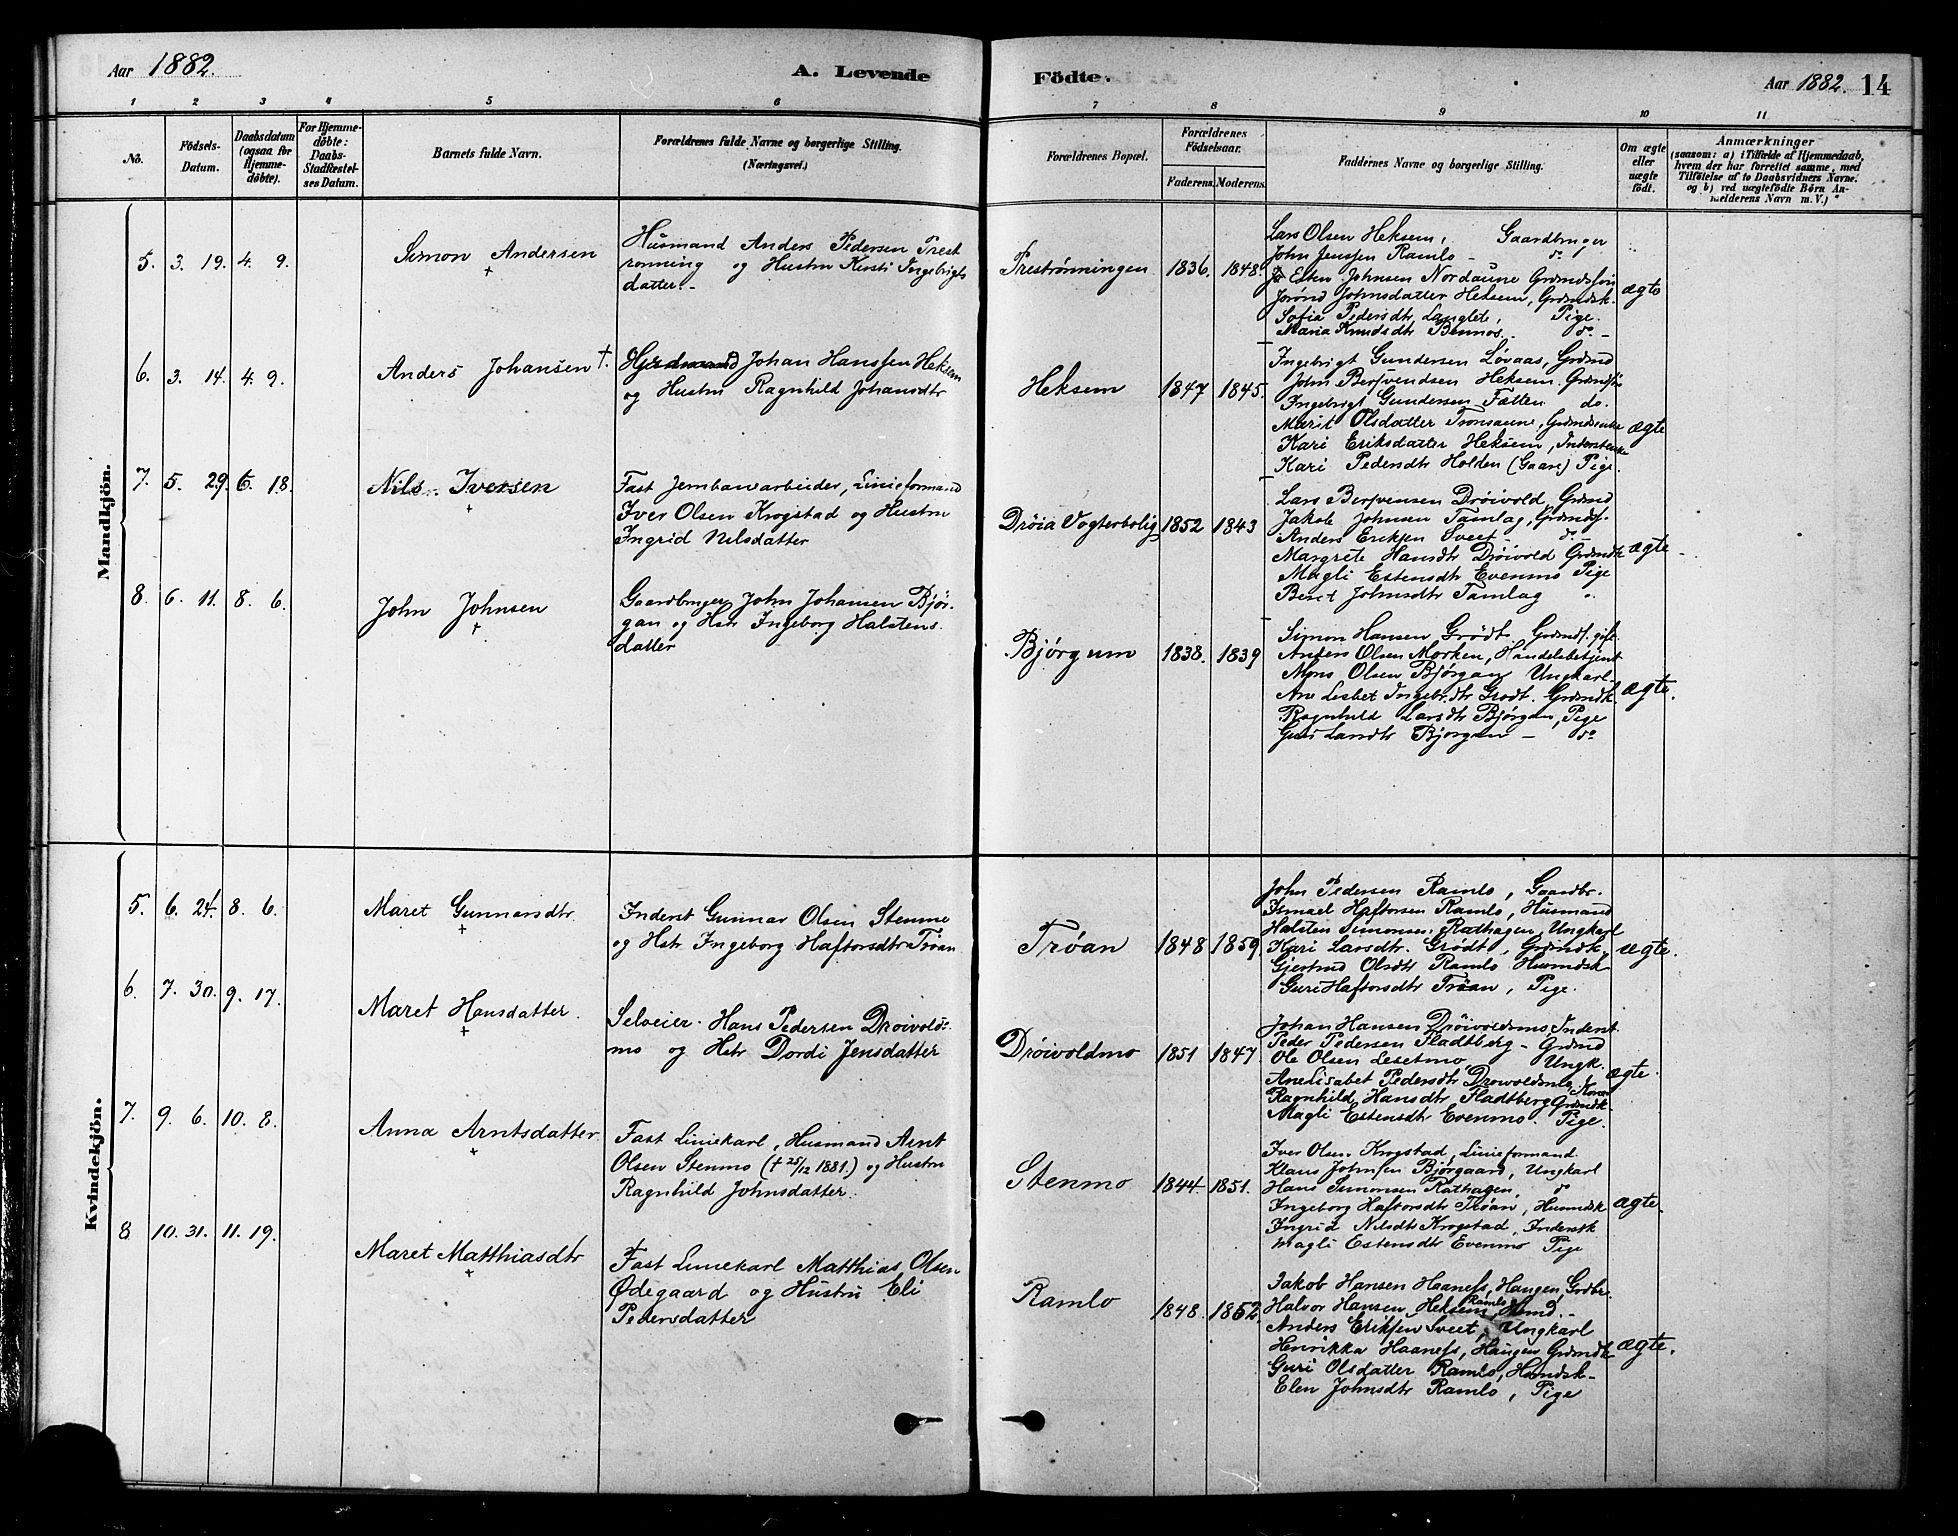 Aar 1882.
A. Levende
Födte.
Aar 1882. 14
1 2 3 4 5 6 7 8 9 10 11
No.
Födsels-
Datum.
Daabsdatum
(ogsaa for
Hjemme-
döbte).
For Hjemme-
döbte:
Daabs-
Stadfæstel-
ses Datum.
Barnets fulde Navn.
Forældrenes fulde Navne og borgerlige Stilling.
(Næringsvei.)
Forældrenes Bopæl.
Forældrenes
Födselsaar.
Faderens. Moderens.
Faddernes Navne og borgerlige Stilling.
Om ægte
eller
uægte
født.
Anmærkninger
(saasom: a) i Tilfælde af Hjemmedaab,
hvem der har forrettet samme, med
Tilföielse af to Daabsvidners Navne.
og b) ved uægtefödte Börn An-
melderens Navn m. V.)
Mandkjön.
5. 3. 19. 4. 9.
Simon Andersen
Husmand Anders Pedersen Prest
rønning og Hustru Kersti Ingebrigts
datter.
Prestrønningen 1836. 1848.
Lars Olsen Heksem, Gaardbruger
John Jenssen Ramlo - do
Esten Johnsen Nordaune Grdmdssøn
Jorønd Johnsdatter Heksem, Grdmdsk.
Sofia Pedersdtr Langlete, Pige.
Maria Knudsdtr Bennos - do -
ægte
6. 3. 14. 4. 9.
Anders Johansen †.
Johan Hanssen Heksem
og Hustru Ragnhild Johansdtr
Heksem 1847 1845.
Ingebrigt Gundersen Løvaas, Grdmd
John Bersvendsen Heksem. Grdmds
Ingebrigt Gundersen Fætten do.
Marit Olsdatter Tronsaune, Grdmdsenke
Kari Eriksdatter Heksem, Inderstenke
Kari Pedersdtr Holden (Gaare) Pige.
ægte
7. 5. 29. 6. 18.
Nils Iversen
Fast Jernbanearbeider, Linieformand
Iver Olsen Krogstad og Hustru
Ingrid Nilsdatter
Drøia Vogterbolig 1852 1843
Lars Bersvensen Drøivold, Grdmd
Jakob Johnsen Tamlag, Grdmds.
Anders Eriksen Sveet do
Margrete Hansdtr Drøivold Grdmdk
Magli Estensdtr Evenmo Pige
Beret Johnsdtr Tamlag
ægte
8. 6. 11. 8. 6.
John Johnsen
Gaardbruger John Johansen Bjør-
gan og Hstr Ingeborg Halstens
datter
Bjørgum 1838. 1839
Simon Hansen Grødt. Grdmds. gift
Anders Olsen Morken, Handelsbetjent
Mons Olsen Bjørgan Ungkarl
Ane Lesbet Ingebr.dtr Grødt. Grdmdk.
Ragnhild Larsdtr Bjørgan, Pige
Guri Larsdtr Bjørgan - do
ægte.
Kvindekjön.
5. 6. 24. 8. 6.
Maret Gunnarsdtr.
Inderst Gunnar Olsen Stenme
og Hstr Ingeborg Haftorsdtr Trøan
Trøan 1848 1859
John Pedersen Ramlo, Gaardbr.
Ismael Haftorsen Ramlo, Husmand
Halsten Simonsen Rathagen, Ungkarl
Kari Larsdtr. Grødt, Grdmdk.
Gjertrud Olsdtr Ramlo Husmdsk
Guri Haftorsdtr Trøan, Pige.
ægte.
6. 7. 30. 9. 17.
Maret Hansdatter.
Selveier Hans Pedersen Drøivolds-
mo og Hstr Dordi Jensdatter
Drøivoldmo 1851 1847.
Johan Hansen Drøivoldsmo, Inderst.
Peder Pedersen Fladtberg - Grdmd
Ole Olsen Lesetmo, Ungk.
Anelisabet Pedersdtr Drøivoldsmo Kone
Ragnhild Hansdtr Fladtberg Grdmdk.
Magli Estensdtr Evenmo. Pige.
ægte.
7. 9. 6. 10. 8.
Anna Arntsdatter.
Fast Liniekarl, Husmand Arnt
Olsen Stenmo († 25/12 1881.) og Hustru
Ragnhild Johnsdatter.
Stenmo 1844. 1851.
Iver Olsen Krogstad, Linieformand.
Klaus Johnsen Bjørgaard, Ungkarl
Hans Simonsen Rathagen, do
Ingeborg Haftorsdtr Trøan, Husmdsk
Ingrid Nilsdtr Krogstad, Inderstk
Magli Estensdtr Evenmo Pige
ægte.
8 10. 31. 11. 19.
Maret Matthiasdtr
Fast Liniekarl Matthias Olsen
Ødegaard og Hustru Eli
Pedersdatter
Ramlo 1848. 1852.
Jakob Hansen Haaness, Haugen, Grdbr.
Halvor Hansen Heksem Ramlo
Anders Eriksen Sveet, Ungkarl
Henrikka Haaness, Haugen Grdmdk
Guri Olsdatter Ramlo, Husmdsk-
Elen Johnsdtr Ramlo, Pige
ægte.